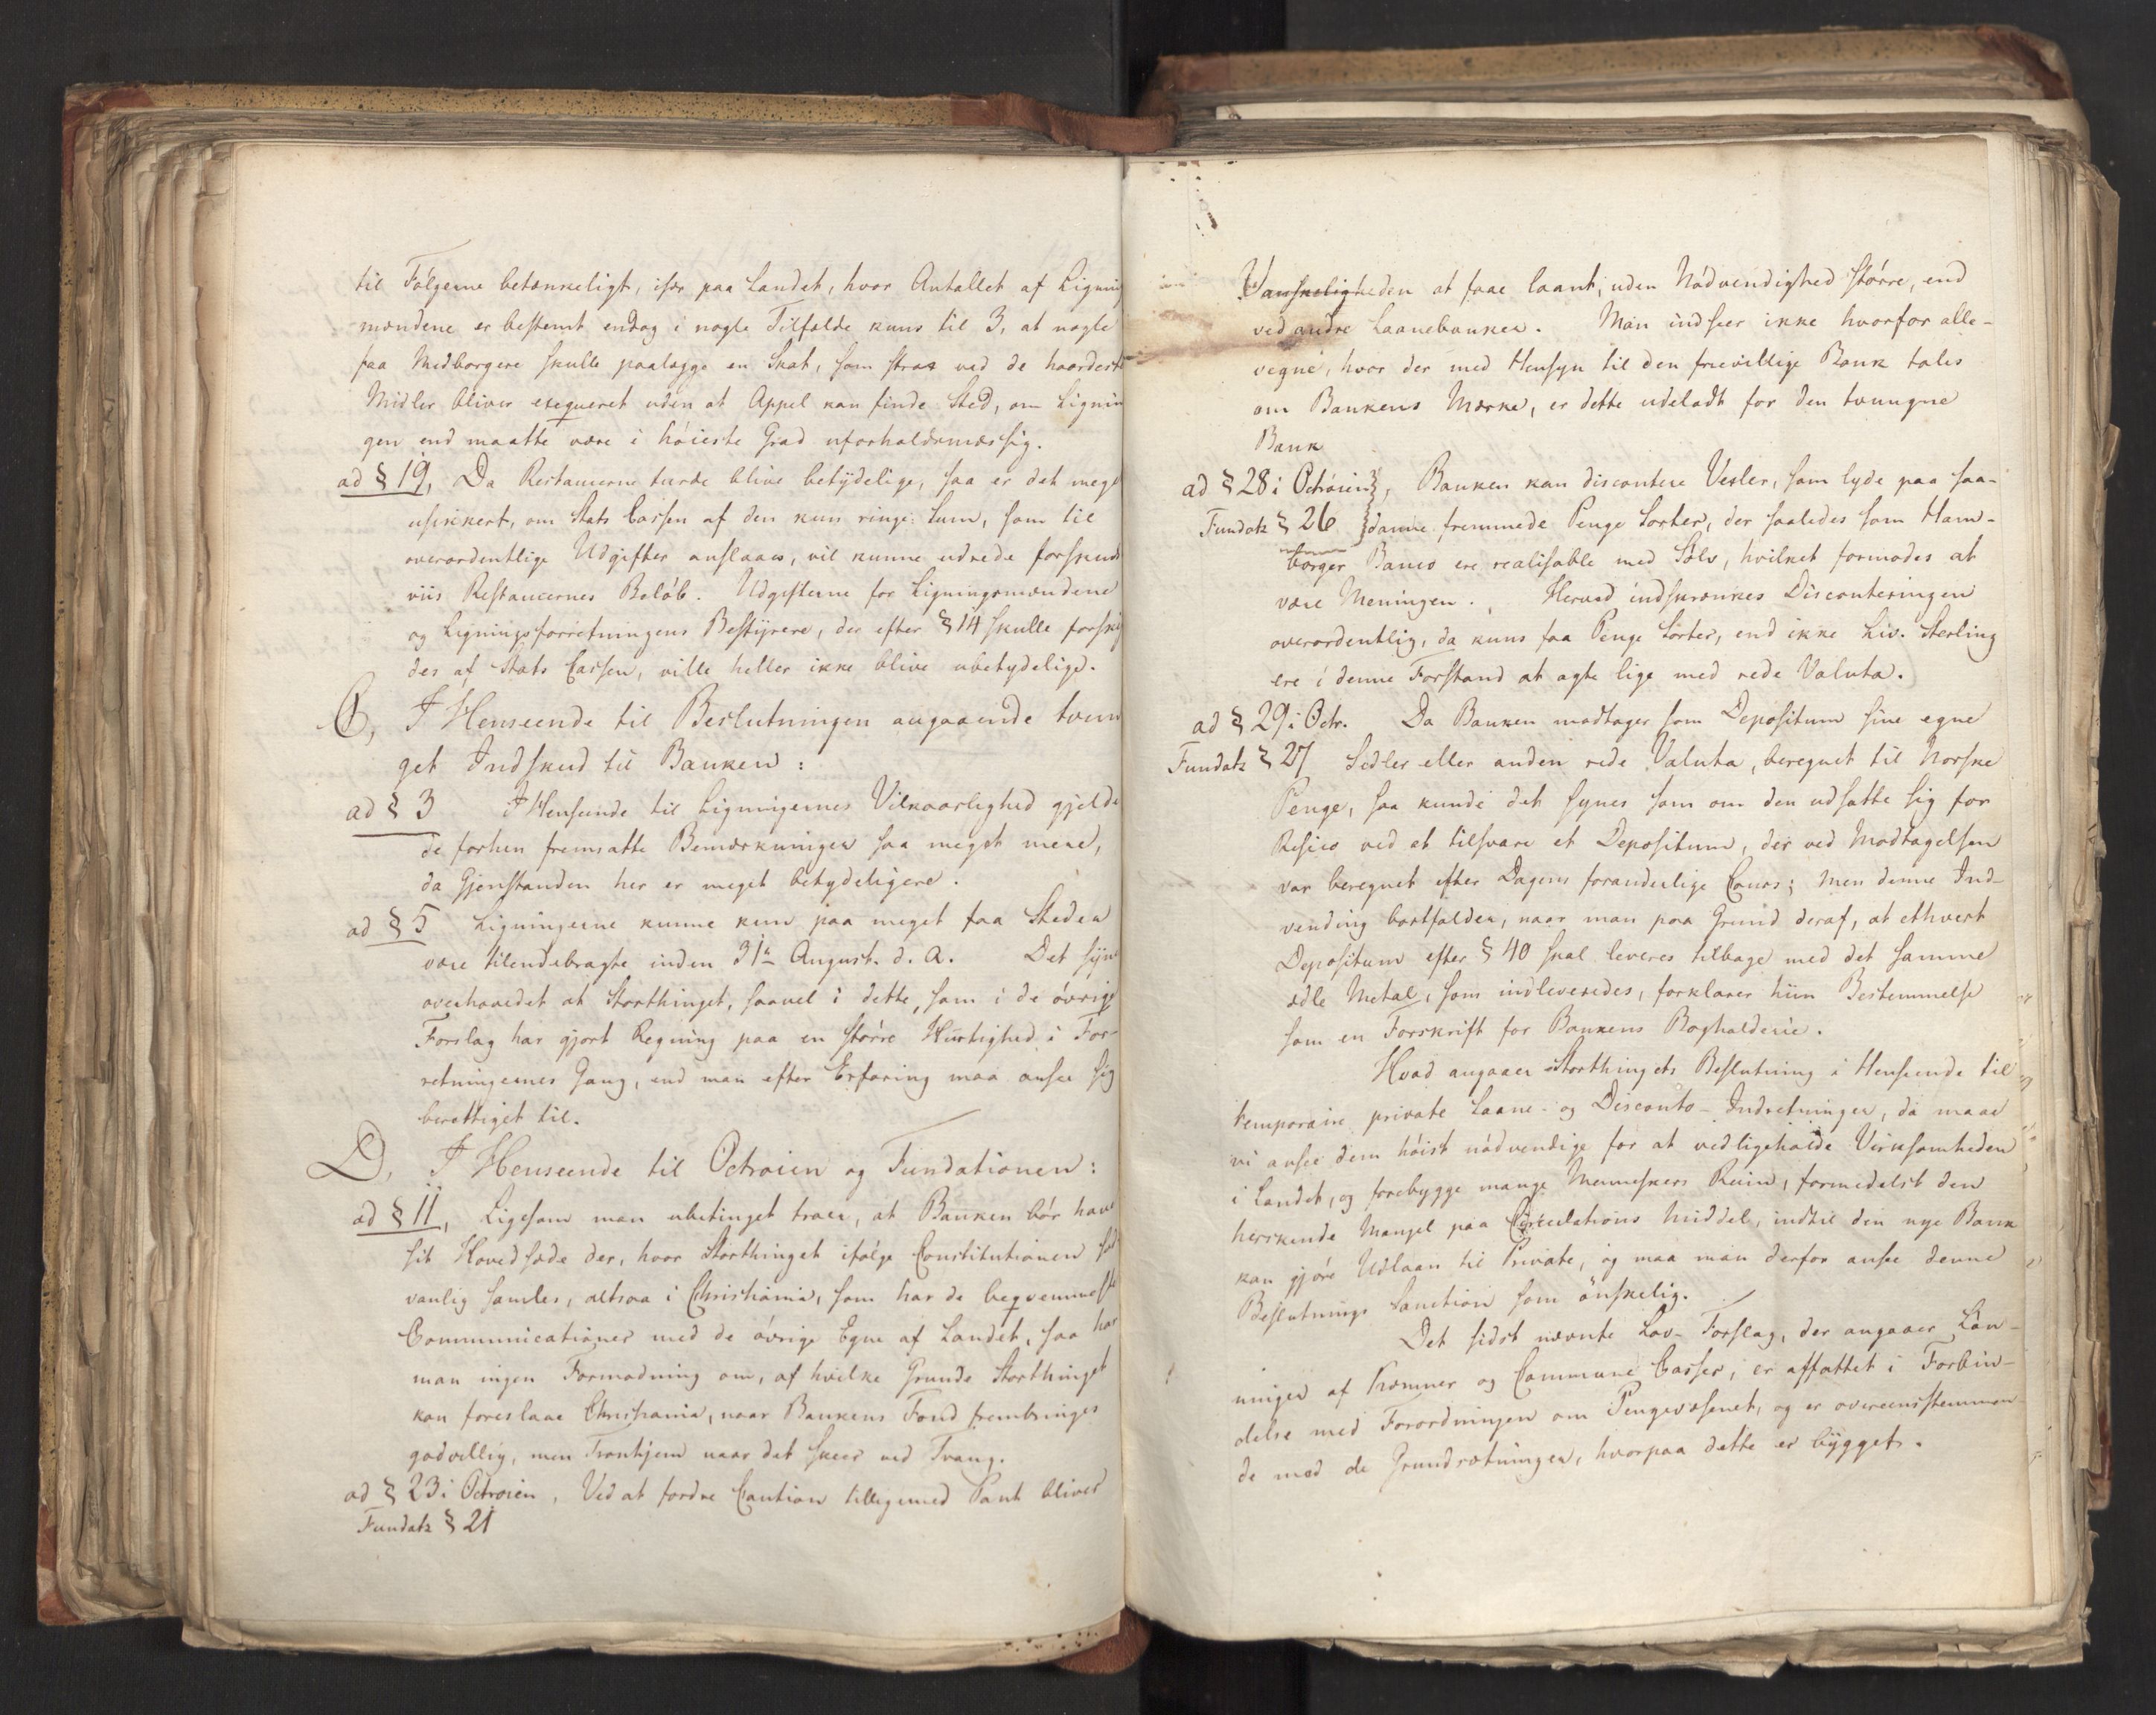 til Følgerne betænkeligt, især paa Landet, hvor Antallet af Ligning
mændene er bestemt endog i nogle Tilfælde kuns til 3, at nogle
faa Medborgere skulle paalægge en Skat, som strax ved de haardeste
Midler bliver exeqveret uden at Appel kan finde Sted, om Lignin
gen end maatte være i høieste Grad uforholdsmæssig.
ad § 19, Da Restancerne turde blive betydelige, saa er det meget
usikkert, om Stats Cassen af den kun ringe Sum, som til
overordentlige Udgifter anslaaes, vil kunne udrede forskuds
viis Restancernes Beløb. Udgifterne for Ligningsmændene
og Ligningsforretningens Bestyrere, der efter § 14 skulle forsky
des af Stats Cassen, ville heller ikke blive ubetydelige.
C, I Henseende til Beslutningen angaaende tvun
get Indskud til Banken:
ad § 3 I Henseende til Ligningernes Vilkaarlighed gjelde
de forhen fremsatte Bemærkninger saa meget mere,
da Gjenstanden her er meget betydeligere.
ad § 5 Ligningerne kunne kun paa meget faa Steder
være tilendebragte inden 31te August. d. A. Det synes
overhovedet at Storthinget, saavel i dette, som i de øvrige
Forslag har gjort Regning paa en større Hurtighed i For-
retningernes Gang, end man efter Erfaring maa ansee sig
berettiget til.
D, I Henseende til Octroien og Fundationen:
ad § 11, Ligesom man ubetinget troer, at Banken bør have
sit Hovedsæde der, hvor Storthinget ifølge Constitutionen sæd
vanlig samles, altsaa i Christiania, som har de beqvemmeste
Communicationer med de øvrige Egne af Landet, saa har
man ingen Formodning om, af hvilke Grunde Storthinget
kan foreslaae Christiania, naar Bankens Fond frembringes
godvillig, men Tronhjem naar det skeer ved Tvang.
ad § 23 i Octroien, Ved at fordre Caution tilligemed Pant bliver
Fundats § 21
Vanskeligheden at faae laant, uden Nødvendighed større, end
ved andre Laanebanker. Man indseer ikke hvorfor alle-
vegne, hvor der med Hensyn til den frievillige Bank tales
om Bankens Mærke, er dette udeladt for den tvungne
Bank
ad § 28 i Octroien, Banken kan discontere Vexler, som lyde paa saa-
Fundats § 26 danne fremmede Penge Sorter, der saaledes som Ham-
borger Banco ere realisable med Sølv, hvilket formodes at
være Meningen. Herved indskrænkes Disconteringen
overordentlig, da kuns faa Penge Sorter, end ikke Liv. Sterling
ere i denne Forstand at agte lige med rede Valuta.
ad § 29 i Octr. Da Banken modtager som Depositum sine egne
Fundats § 27 Sedler eller anden rede Valuta, beregnet til Norske
Penge, saa kunde det synes som om den udsatte sig for
Resico ved at tilsvare et Depositum, der ved Modtagelsen
var beregnet efter Dagens foranderlige Cours; men denne Ind-
vending bortfalder, naar man paa Grund deraf, at ethvert
Depositum efter § 40 skal leveres tilbage med det samme
ædle Metal, som indleveredes, forklarer hiin Bestemmelse
som en Forskrift for Bankens Bogholderie.
Hvad angaaer Storthingets Beslutning i Henseende til
temporaire private Laane- og Disconto-Indretninger, da maae
vi ansee dem høist nødvendige for at vedligeholde Virksomheden
i Landet, og forebygge mange Menneskers Ruin, formedelst den
herskende Mangel paa Circulations Middel, indtil den nye Bank
kan gjøre Udlaan til Private, og maa man derfor ansee denne
Beslutnings Sanction som ønskelig.
Det sidst nævnte Lov-Forslag, der angaaer Løn-
ninger af Præmier og Commune Casser, er affattet i Forbin-
delse med Forordningen om Pengevæsenet, og er overeenstemmen-
de med de Grundsætninger, hvorpaa dette er bygget.